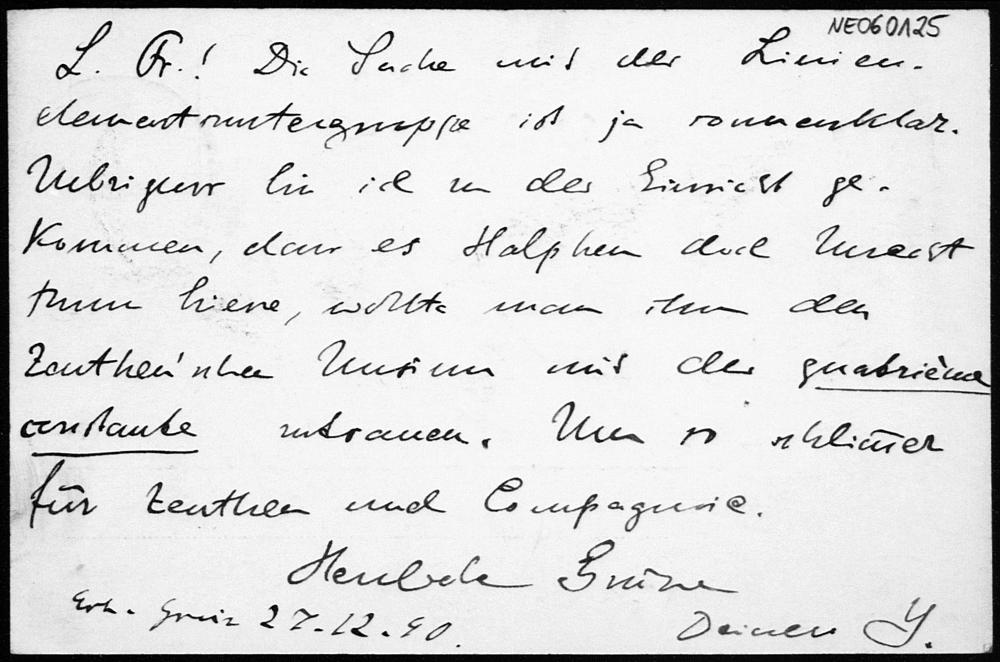 NE060A25
L. Fr.! Die Sache mit der Linien-
elementuntergruppe ist ja sonnenklar.
Uebrigens bin ich zu der Einsicht ge-
kommen, dass es Halphen doch Unrecht
thun hiesse, wollte man ihm den
Zeuthen'schen Unsinn mit der quatrième
constante zutrauen. Um so schlimmer
für Zeuthen und Compagnie.
Herzliche Grüsse
Deinen
27.12.90.